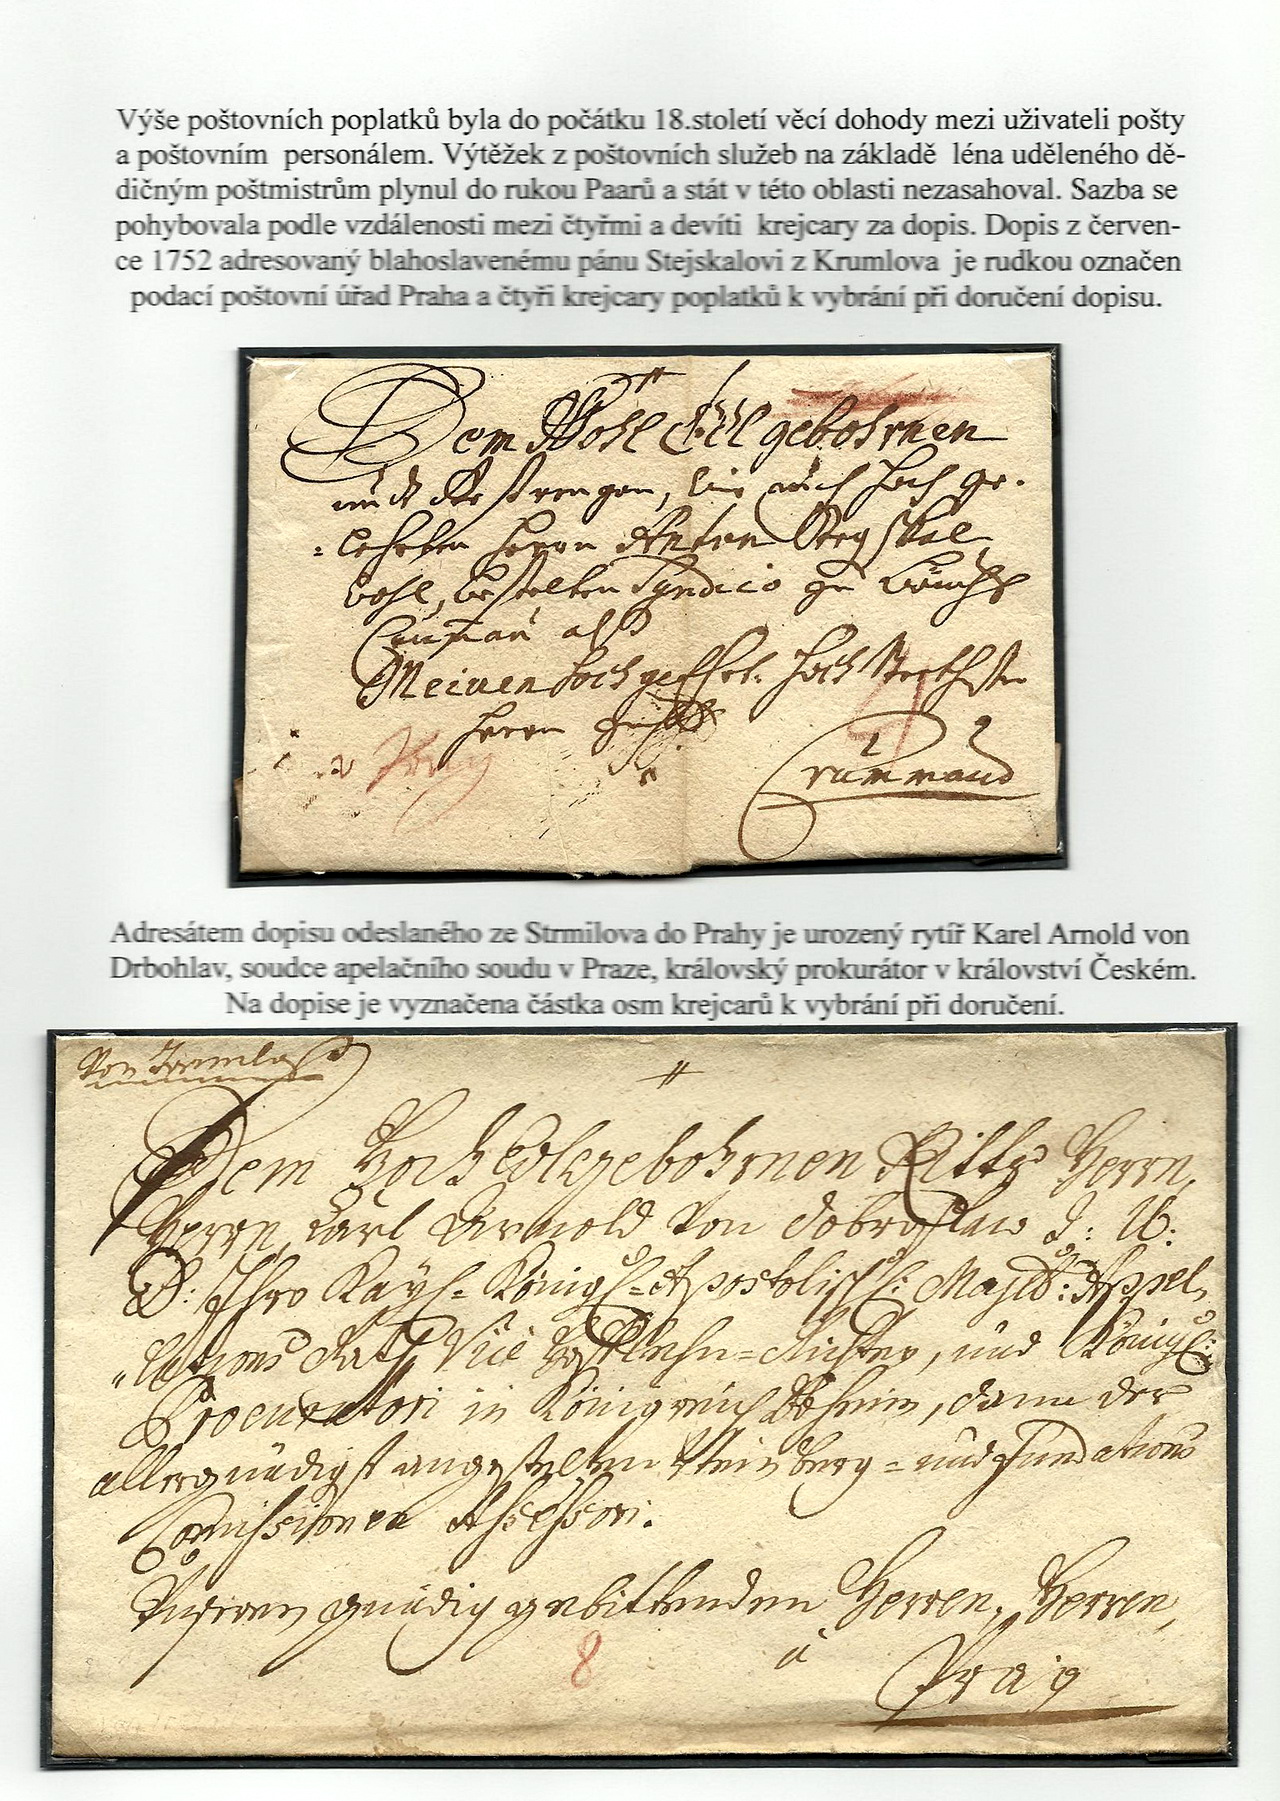 Výše poštovních poplatků byla do počátku 18.století věcí dohody mezi uživateli pošty
a poštovním personálem. Výtěžek z poštovních služeb na základě léna uděleného dě-
dičným poštmistrům plynul do rukou Paarů a stát v této oblasti nezasahoval. Sazba se
pohybovala podle vzdálenosti mezi čtyřmi a devíti krejcary za dopis. Dopis z červen-
ce 1752 adresovaný blahoslavenému pánu Stejskalovi z Krumlova je rudkou označen
podací poštovní úřad Praha a čtyři krejcary poplatků k vybrání při doručení dopisu.
Dem Wohl Edl gebohrnen
und Gestrengen, wie auch hoch ge-
=lehrten Herrn Anton Steyskal
wohl bestelten Syndico zu
als
Meinen hoch
Herrn
4
Crummau
Adresátem dopisu odeslaného ze Strmilova do Prahy je urozený rytíř Karel Arnold von
Drbohlav, soudce apelačního soudu v Praze, královský prokurátor v království Českém.
Na dopise je vyznačena částka osm krejcarů k vybrání při doručení.
Von
Dem Hoch Edlgebohrnen Ritter Herrn,
Herrn Carl Arnold von Dobroslaw J: U:
D: Ihro Kayl= Königl= Apostolisch: Mayst: Appel-
lations Rath Vice Hoflehn=Richter, und Königl:
Procuratori in Königreich Böheim, dann der
allergnädigst angestelten Weinberg= und Fundations
Comissionen Assessori.
gnädig gebittenden Herren, Herren,
8
à
Prag